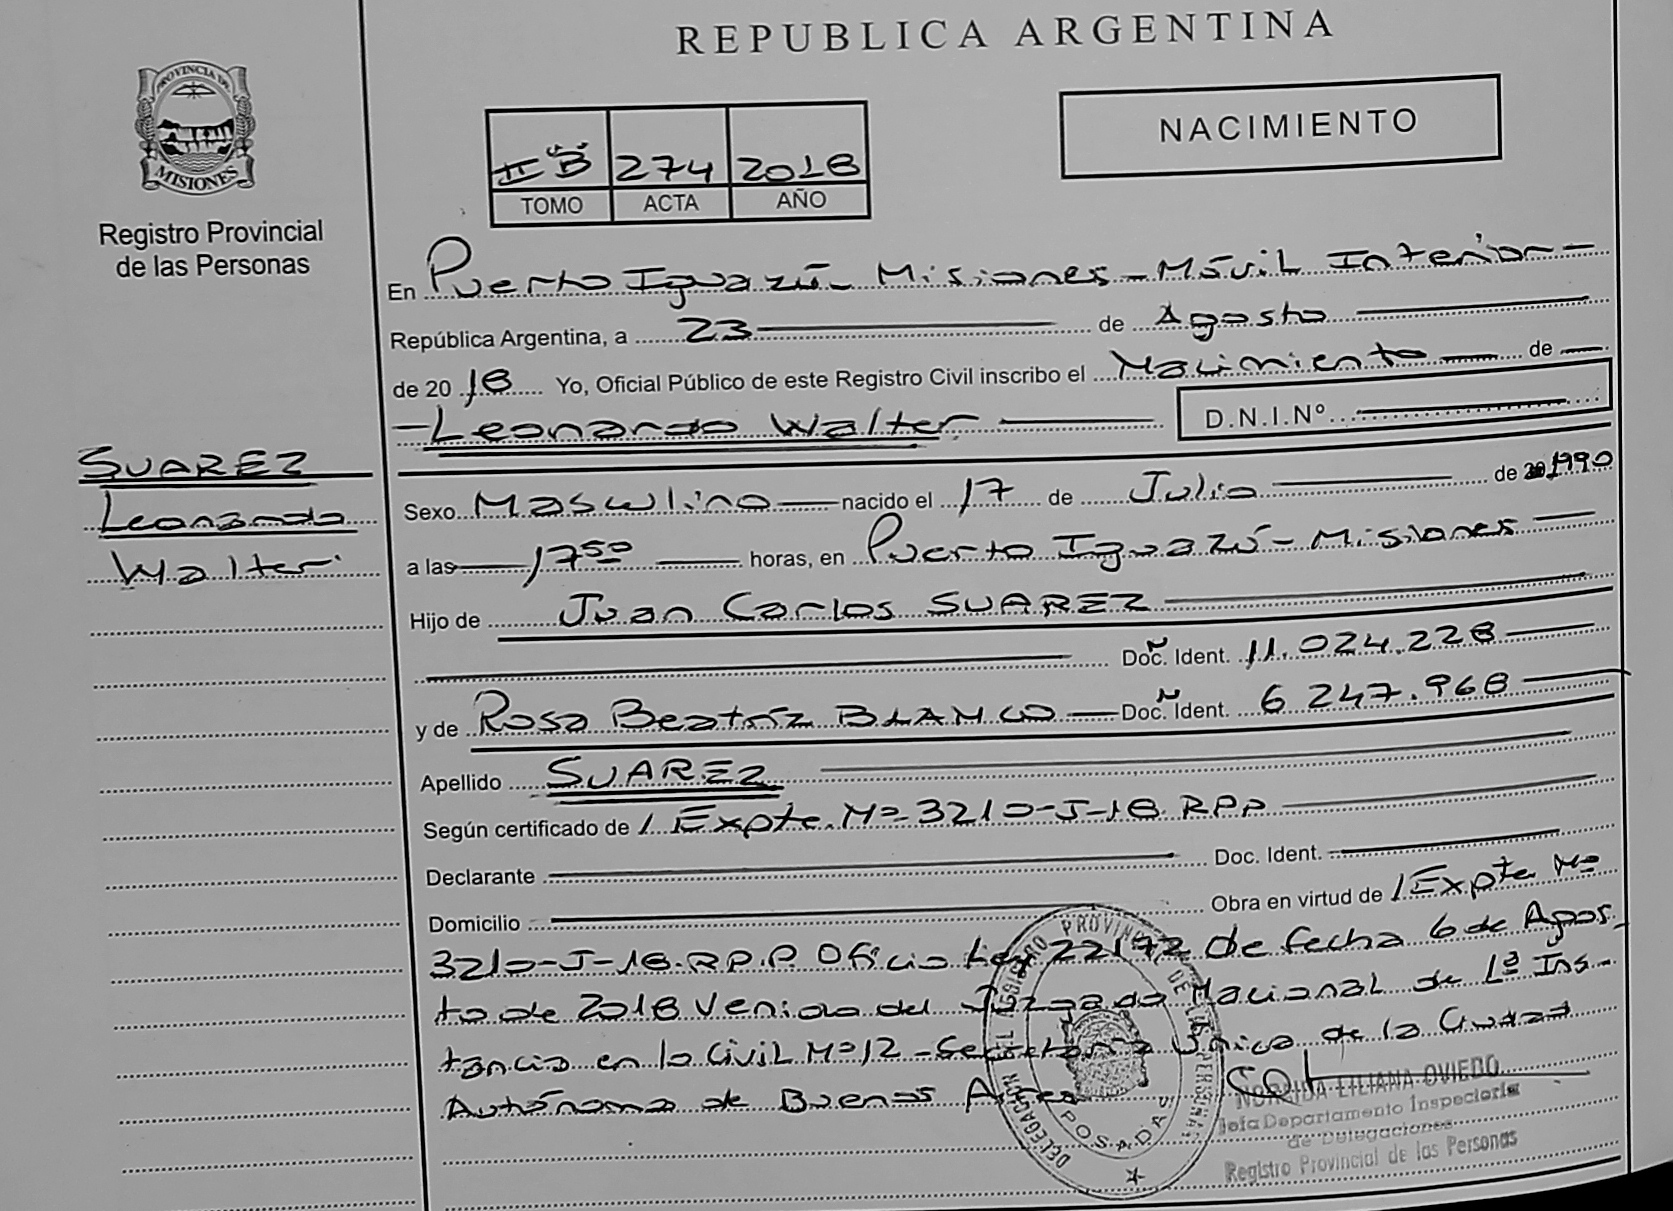 REPUBLICA ARGENTINA
PROVINCIA DE
MISIONES
Registro Provincial
de las Personas
II "B" 274 2018
TOMO ACTA AÑO
NACIMIENTO
En Puerto Iguazú - Misiones - Móvil Interior -
República Argentina, a 23 de Agosto
de 2018 Yo, Oficial Público de este Registro Civil inscribo el Nacimiento de
- Leonardo Walter D.N.I.Nº
SUAREZ
Leonardo
Walter
Sexo Masculino nacido el 17 de Julio de 1990
a las 17 50 horas, en Puerto Iguazú - Misiones
Hijo de Juan Carlos SUAREZ
Doc. Ident. 11.024.228
y de Rosa Beatriz BLANCO Doc. Ident. 6 247.968
Apellido SUAREZ
Según certificado de / Expte. Nº 3210-J-18. RPP
Declarante Doc. Ident.
Domicilio Obra en virtud de / Expte Nº
3210-J-18.R.P.P. Oficio Ley 22172 de fecha 6 de Agos-
to de 2018 Venido del Juzgado Nacional de 1ª Ins-
tancia en lo Civil Nº 12 - Secretaria Unica de la Ciudad
Autónoma de Buenos Aires
LILIANA OVIEDO
Jefa Departamento Inspectoria
de Delegaciones
Registro Provincial de las Personas
DELEGACION REGISTRO PROVINCIAL DE LAS PERSONAS
POSADAS